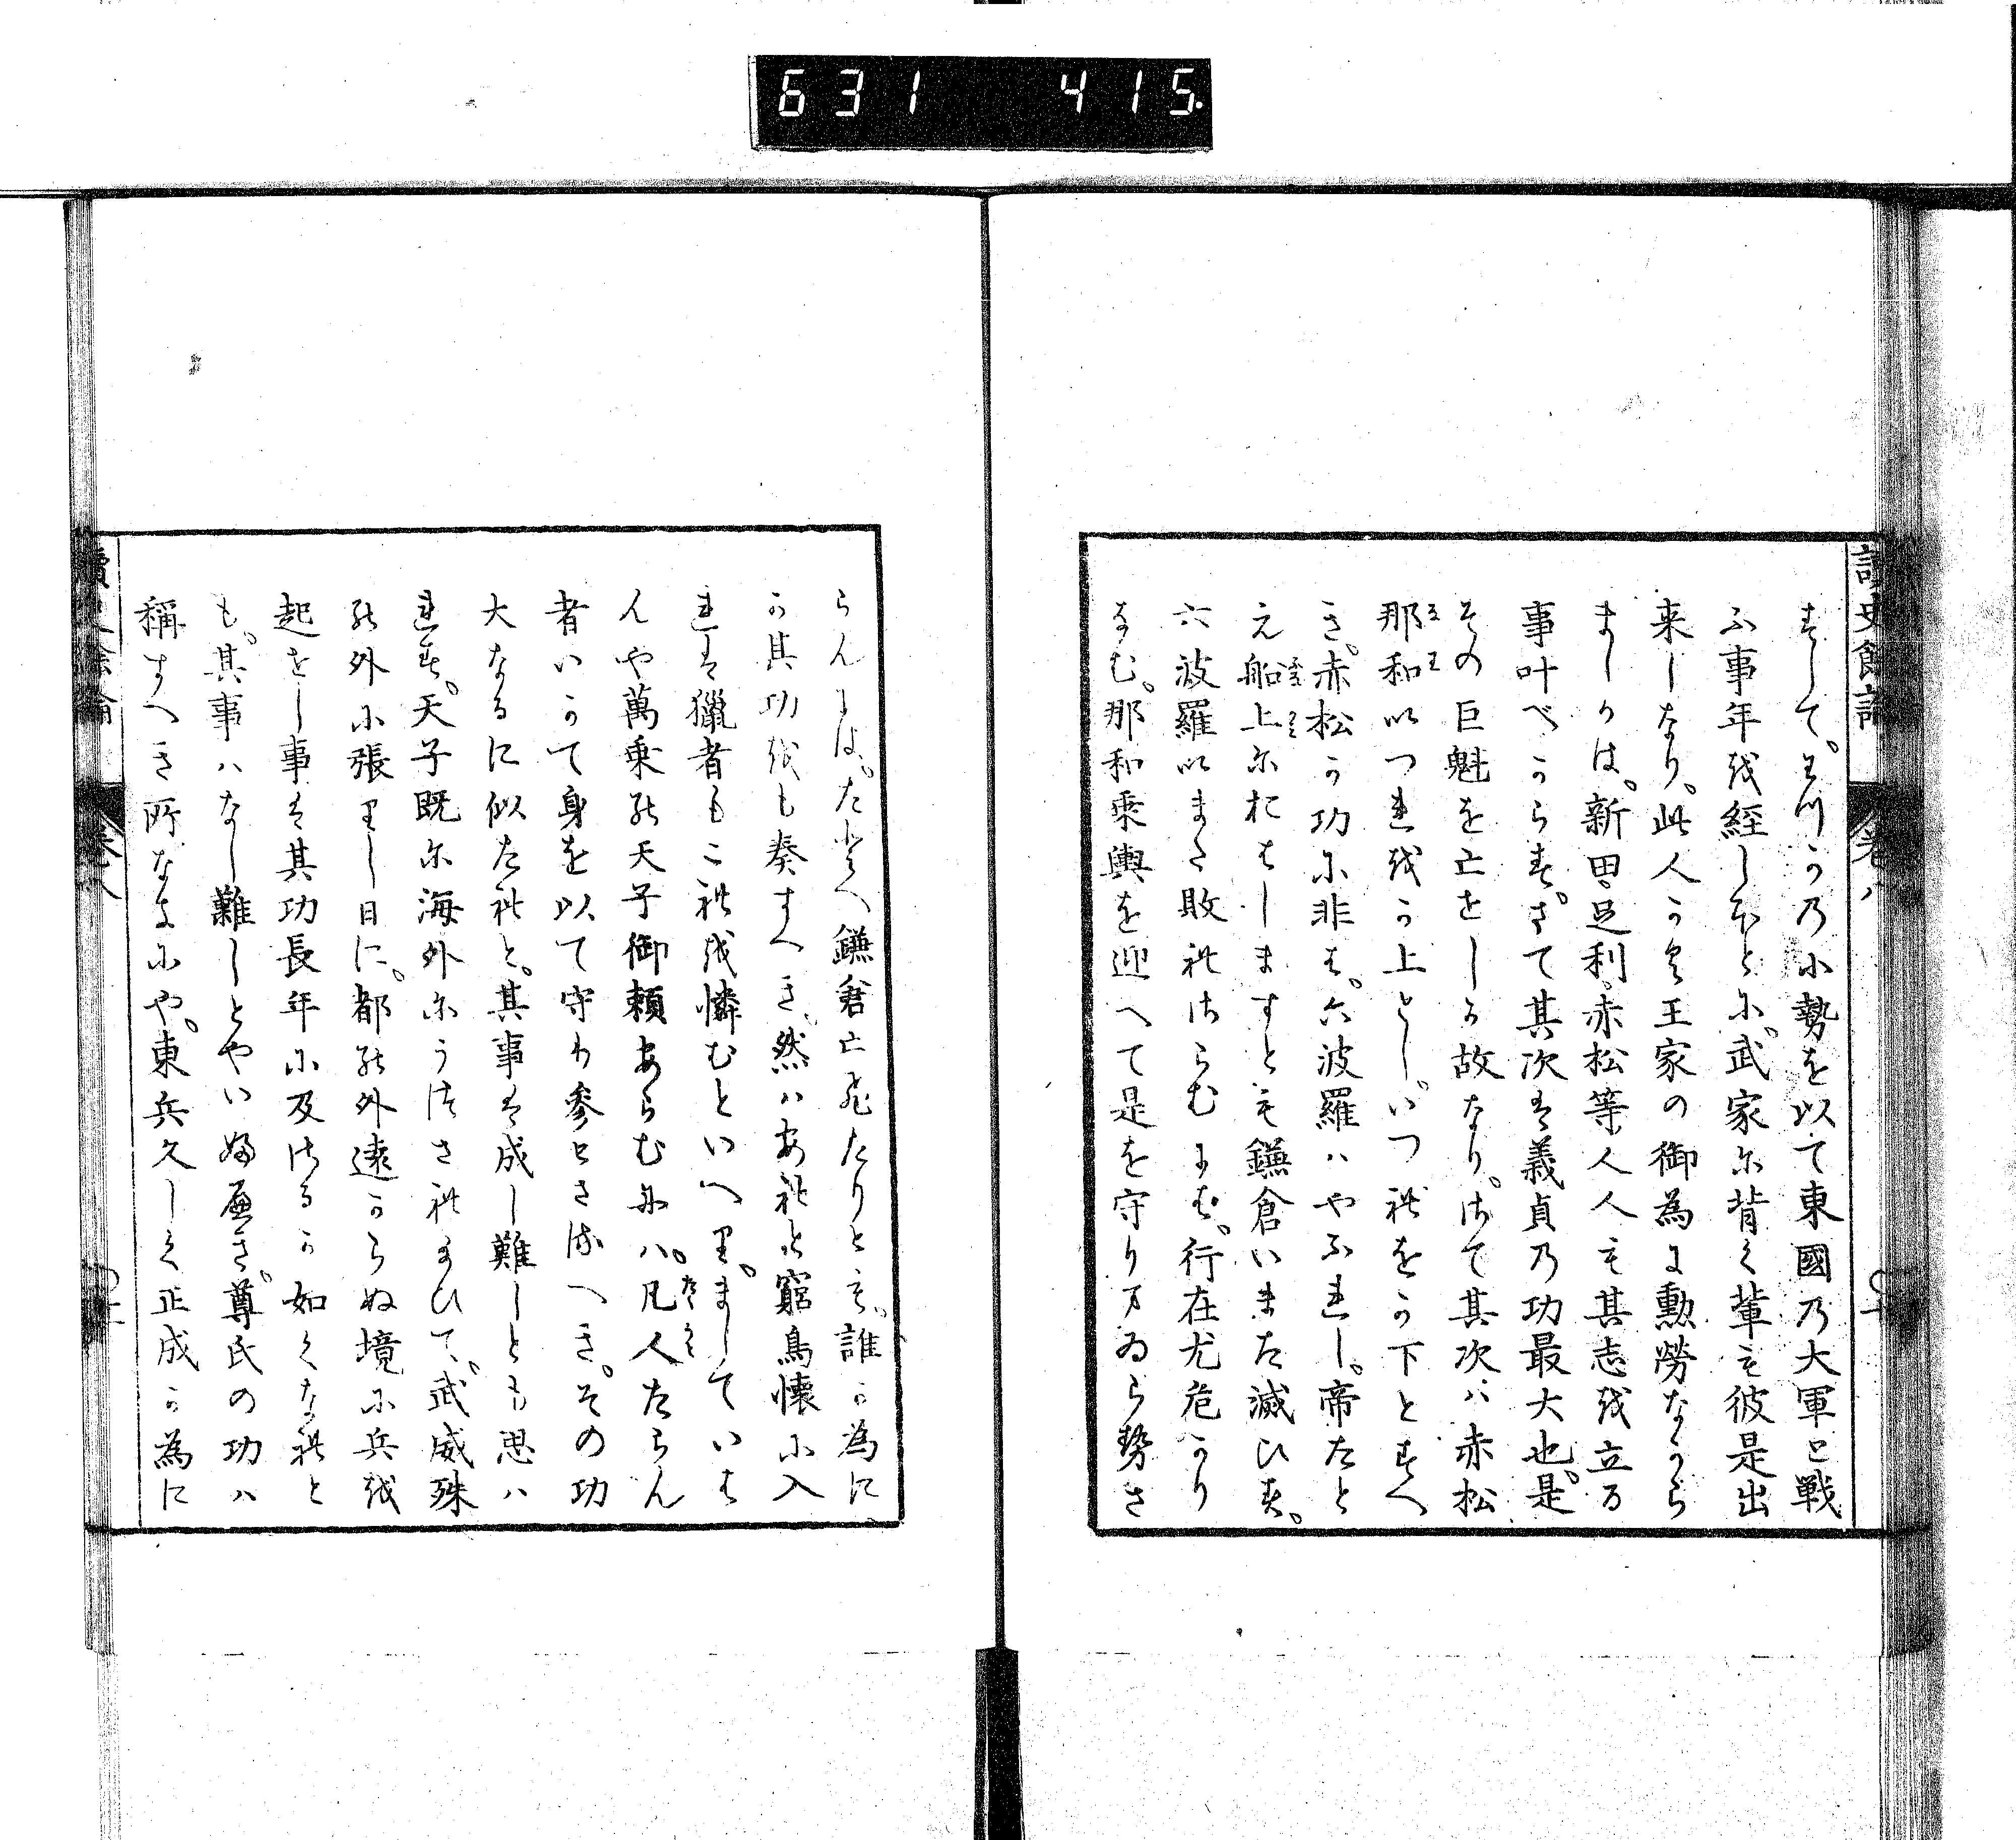 631 415.
讀史餘論 卷八
すして。わつかの小勢を以て東國乃大軍と戰
ふ事年を経しほとに。武家に背く輩も彼是出
来しなり。此人かく王家の御為に勲勞なから
ましかは。新田足利赤松等人人も其志を立る
事叶べからす。さて其次は義貞乃功最大也。是
その巨魁を亡をしか故なり。さて其次は赤松
那和いつれをか上とし。いつれをか下とすへ
き。赤松か功に非す。六波羅はやふれし。帝たと
え船上におはしますとも鎌倉いまた滅ひす。
六波羅いまた敗れさらむには。行在尤危かり
なむ。那和乗輿を迎へて是を守りまゐらせさ
らんには。たとへ鎌倉亡ひたりとも。誰か為に
か其功をも奏すへき。然はあれと窮鳥懐に入
れは獵者もこれを憐むといへり。ましていは
んや萬乗の天子御頼あらむには。凡人たらん
者いかて身を以て守り参らせさるへき。その功
大なるに似たれと。其事は成し難しとも思は
れす。天子既に海外にうつされ給ひて。武威殊
の外に張りし日に。都の外遠からぬ境に兵を
起をし事は其功長年に及はるか如くなれと
も。其事はなし難しとやいふへき。尊氏の功は
稱すへき所なきにや。東兵久しく正成か為に
讀史餘論 卷八